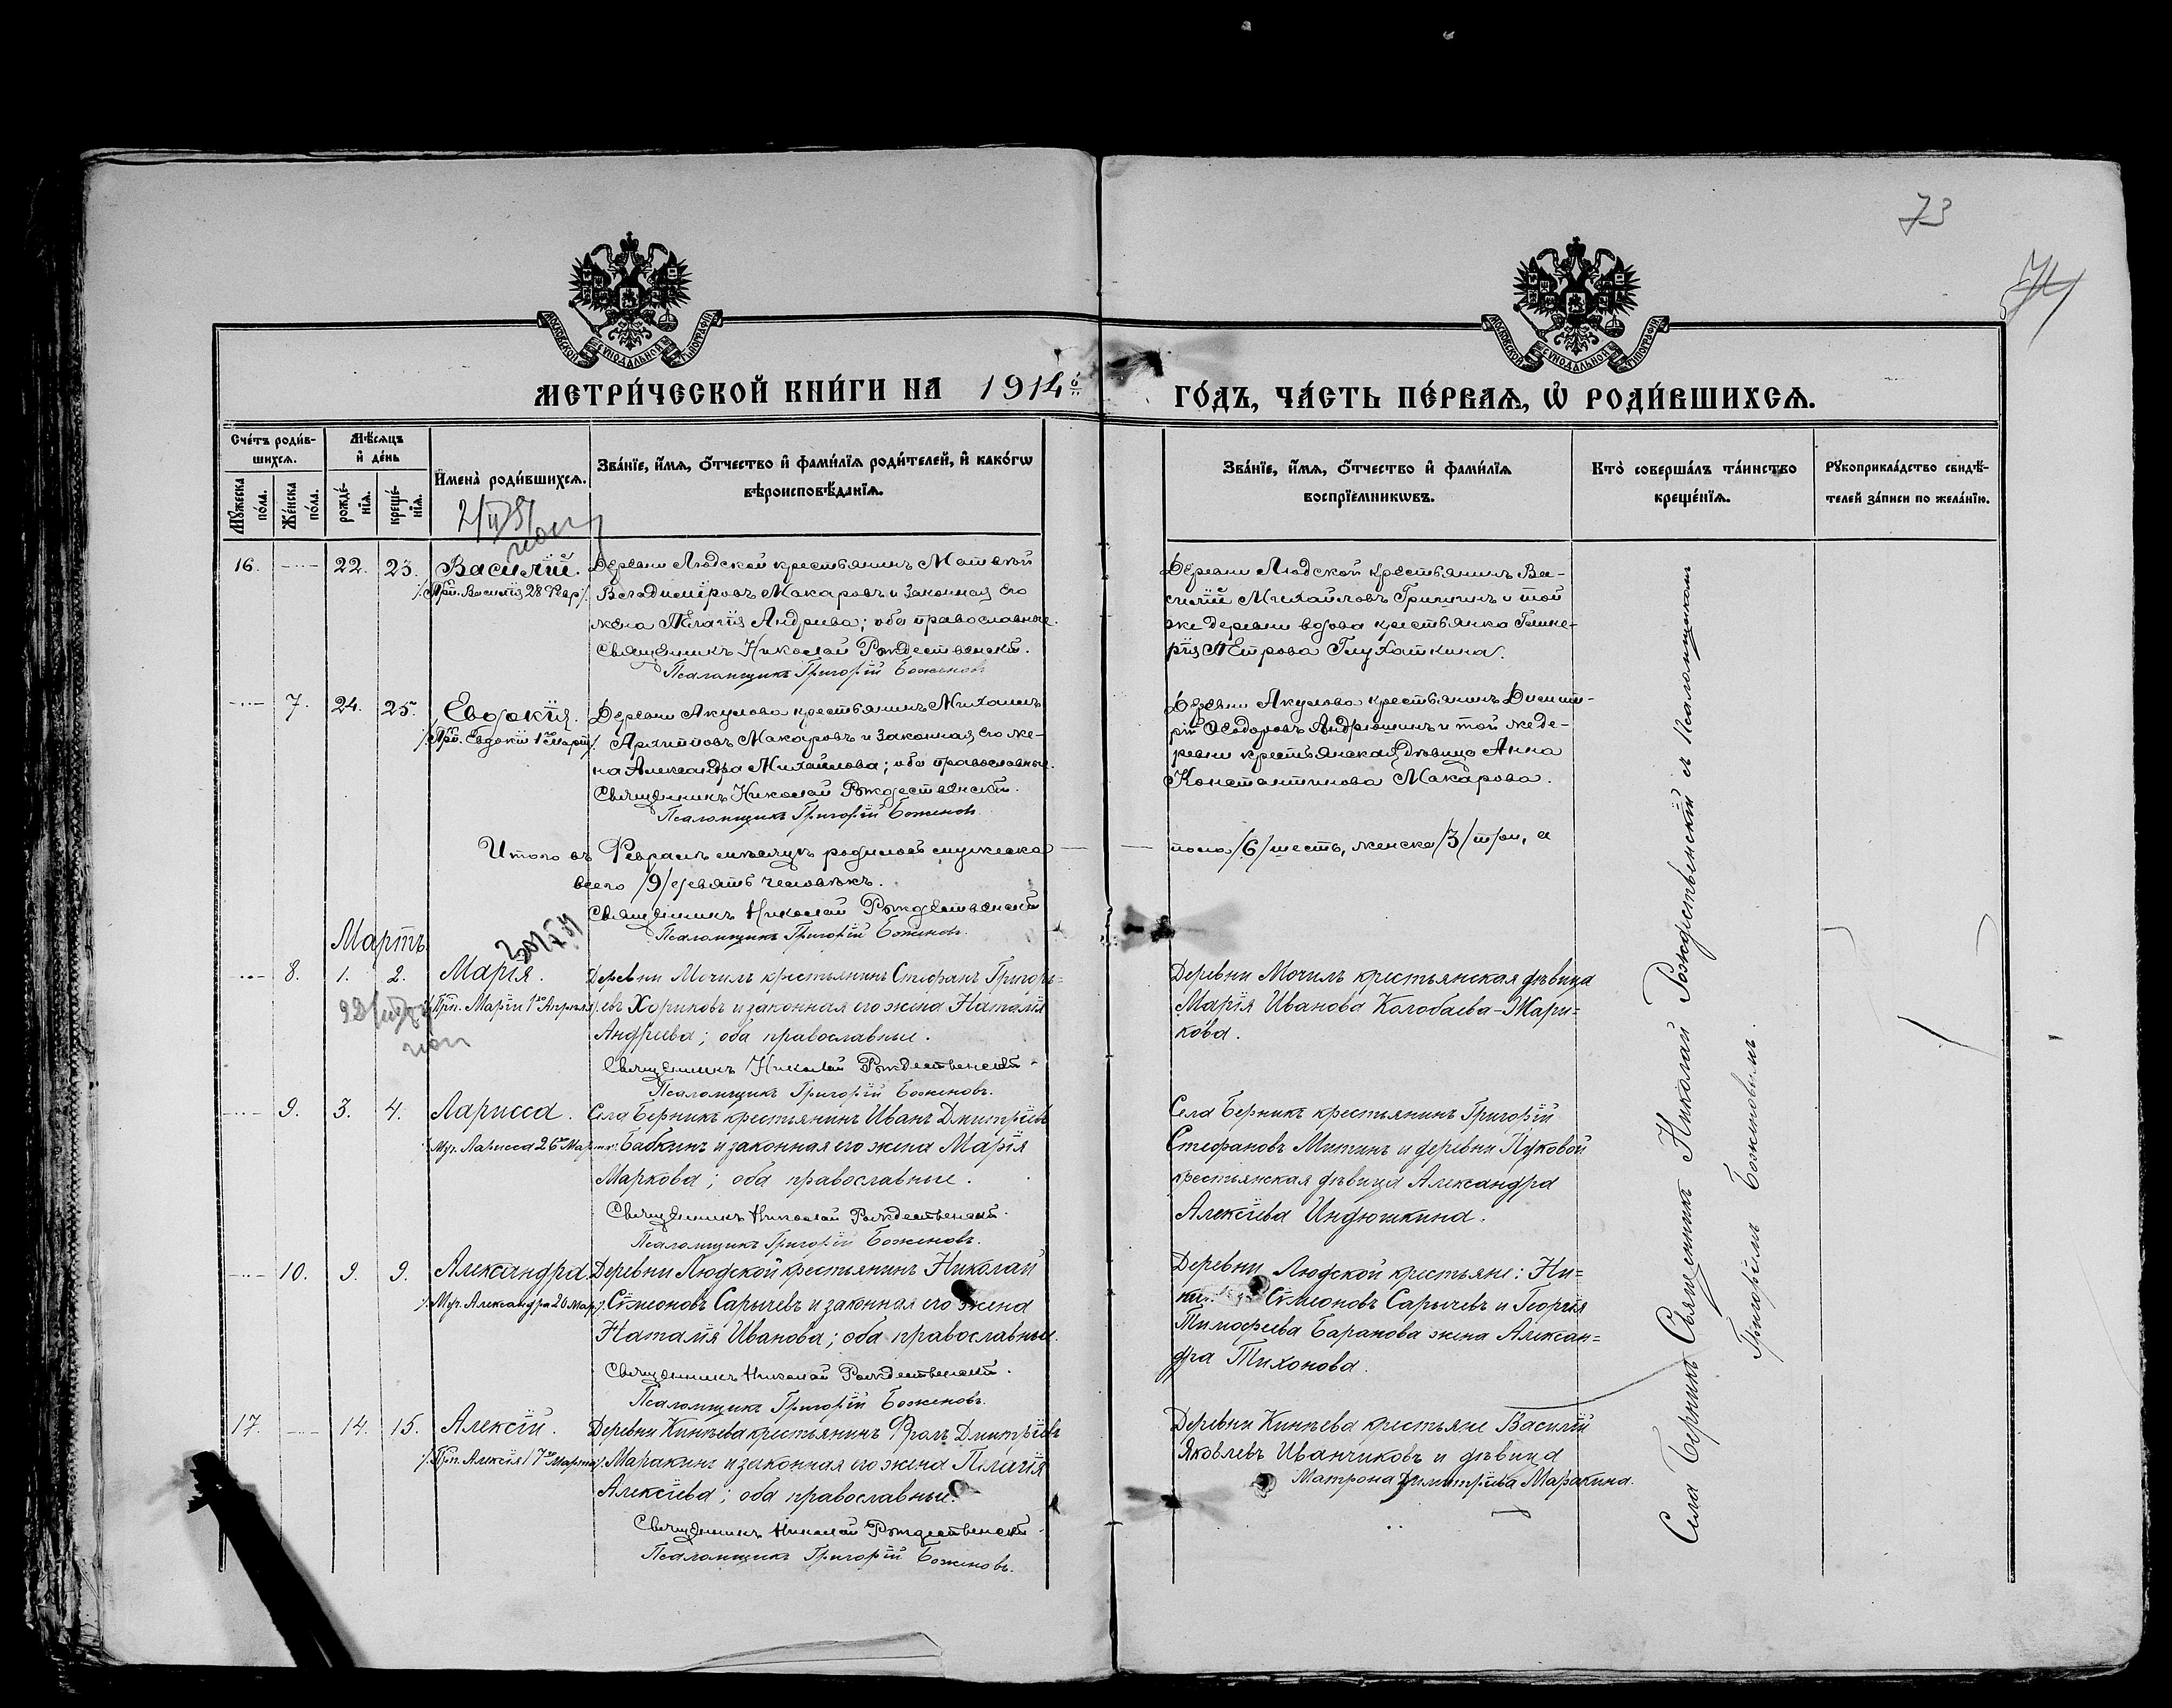 73
74
МОСКОВСКОЙ СѴНОДАЛЬНОЙ ТИПОГРАФІИ
МОСКОВСКОЙ СѴНОДАЛЬНОЙ ТИПОГРАФІИ
МЕТРИ́ЧЕСКОЙ КНИ́ГИ НА 1914й ГО́ДЪ, ЧА́СТЬ ПЕ́РВАѦ, Ѽ РОДИ́ВШИХСѦ.
Сче́тъ роди́в-
шихсѧ.
Мꙋ́жеска по́ла.
Же́нска по́ла.
Мѣ́сѧцъ
и҆ де́нь
рожде́-нїѧ.
креще́-нїѧ.
И҆мена̀ роди́вшихсѧ.
Зва́нїе, и҆́мѧ, ѻ҆́тчество и҆ фами́лїѧ роди́телей, и҆ како́гѡ
вѣроисповѣ́данїѧ.
Зва́нїе, и҆́мѧ, ѻ҆́тчество и҆ фами́лїѧ
воспрїе́мникѡвъ.
Кто̀ соверша́лъ та́инство
креще́нїѧ.
Рꙋкоприкла́дство свидѣ́-
телей за́писи по жела́нїю.
16. 22. 23. Василій.
Прп. Василія 28 Февр.
Деревни Людской крестьянинъ Матѳей
Владиміровъ Макаровъ и законная его
жена Пелагія Андреева; оба православные.
Священникъ Николай Рождественскій.
Псаломщикъ Григорій Боженовъ.
Деревни Людской крестьянинъ Ва-
силій Михайловъ Гришинъ и той
же деревни вдова крестьянка Глике-
рія Петрова Глухаткина.
7. 24. 25. Евдокія.
Прп. Евдокіи 1го Марта
Деревни Акулова крестьянинъ Михаилъ
Архиповъ Макаровъ и законная его же-
на Александра Михайлова; оба православные.
Священникъ Николай Рождественскій.
Псаломщикъ Григорій Боженовъ
Деревни Акулова крестьянинъ Димит-
рій Ѳеодоровъ Андрюшинъ и той же де-
ревни крестьянская дѣвица Анна
Константинова Макарова.
Итого въ Февралѣ мѣсяцѣ родилось мужеска пола /6/ шесть, женска /3/ три, а
всего /9/ девять человѣкъ.
Священникъ Николай Рождественскій
Псаломщикъ Григорій Боженовъ.
Мартъ
8. 1. 2. Марія.
Прп. Маріи 1го Апрѣля
Деревни Мочилъ крестьянинъ Стефанъ Григорь=
евъ Хориковъ и законная его жена Наталія
Андреева; оба православные.
Священникъ Николай Рождественскій
Псаломщикъ Григорій Боженовъ.
Деревни Мочилъ крестьянская дѣвица
Марія Иванова Колобаева-Жари=
кова.
9. 3. 4. Ларисса.
Муч. Ларисса 26го Мар
Села Берникъ крестьянинъ Иванъ Дмитріевъ
Бабкинъ и законная его жена Марія
Маркова; оба православные.
Священникъ Николай Рождественскій.
Псаломщикъ Григорій Боженовъ.
Села Берникъ крестьянинъ Григорій
Стефановъ Митинъ и деревни Пуковой
крестьянская дѣвица Александра
Алексіева Индюшкина.
10. 9. 9. Александра.
Муч. Александра 20 Мар.
Деревни Людской крестьянинъ Николай
Симеоновъ Сарычевъ и законная его жена
Наталія Иванова; оба православные.
Священникъ Николай Рождественскій.
Псаломщикъ Григорій Боженовъ.
Деревни Людской крестьяне: Ни=
Симеоновъ Сарычевъ и Георгія
Тимофеева Баранова жена Алексан=
дра Тихонова.
17. 14. 15. Алексій.
Прп. Алексія 17го Марта
Деревни Кинѣева крестьянинъ Фролъ Дмитріевъ
Маракинъ и законная его жена Пелагія
Алексіева; оба православные.
Священникъ Николай Рождественскій
Псаломщикъ Григорій Боженовъ.
Деревни Кинѣева крестьяне Василій
Яковлевъ Иванчиковъ и дѣвица
Матрона Димитріева Маракина.
Села Берникъ Священникъ Николай Рождественскій съ Псаломщикомъ
Григоріемъ Боженовымъ.